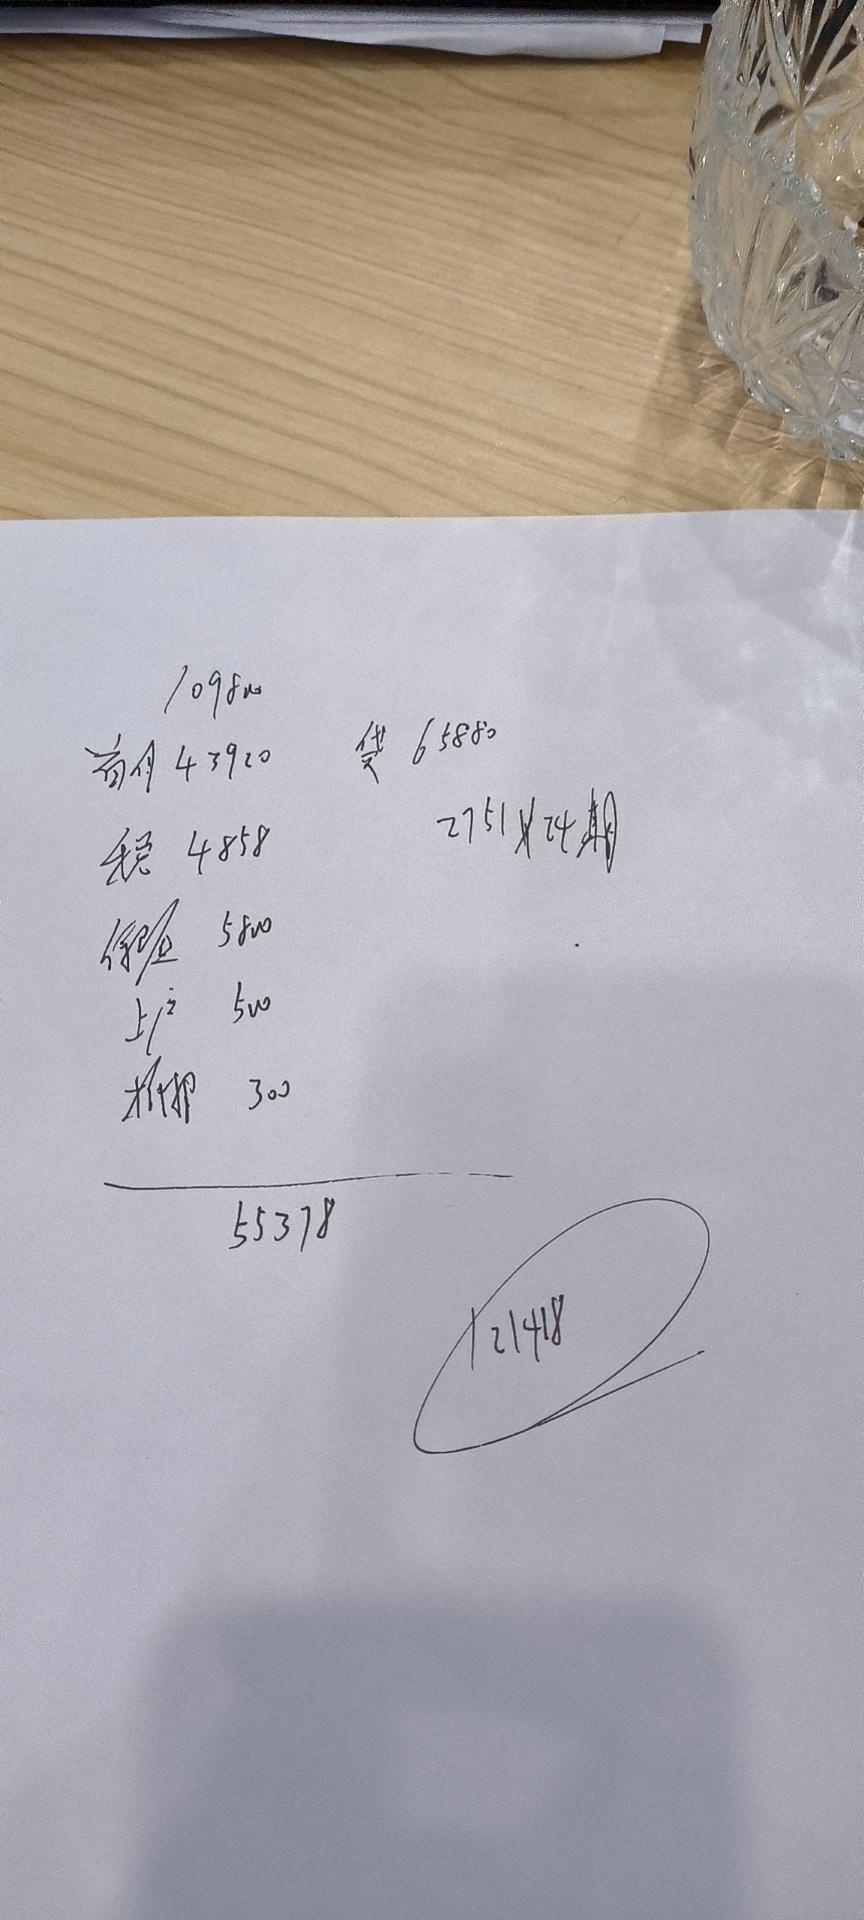 109800
首付 43920 贷 65880
2751×24期
税 4858
保险 5800
上户 500
抵押 300
55378
121418